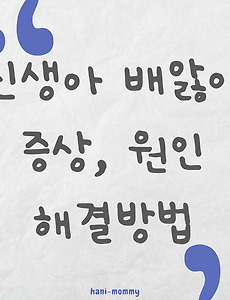 신생아 배앓이
증상, 원인
해결방법
hani-mommy